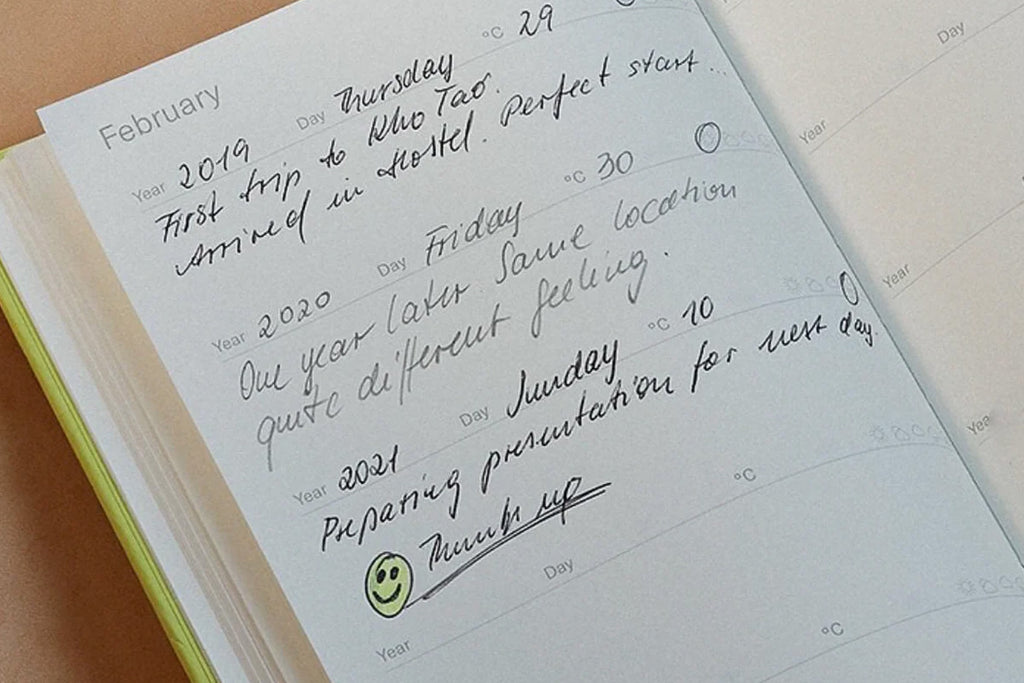 February
Year 2019 Day Thursday °C 29
First trip to Kho Tao.
Arrived in Hostel. Perfect start...
Year 2020 Day Friday °C 30
One year later. Same location
quite different feeling.
Year 2021 Day Sunday °C 10
Preparing presentation for next day.
Thumbs up
Year Day °C
°C
Day
Year
Year
Yea